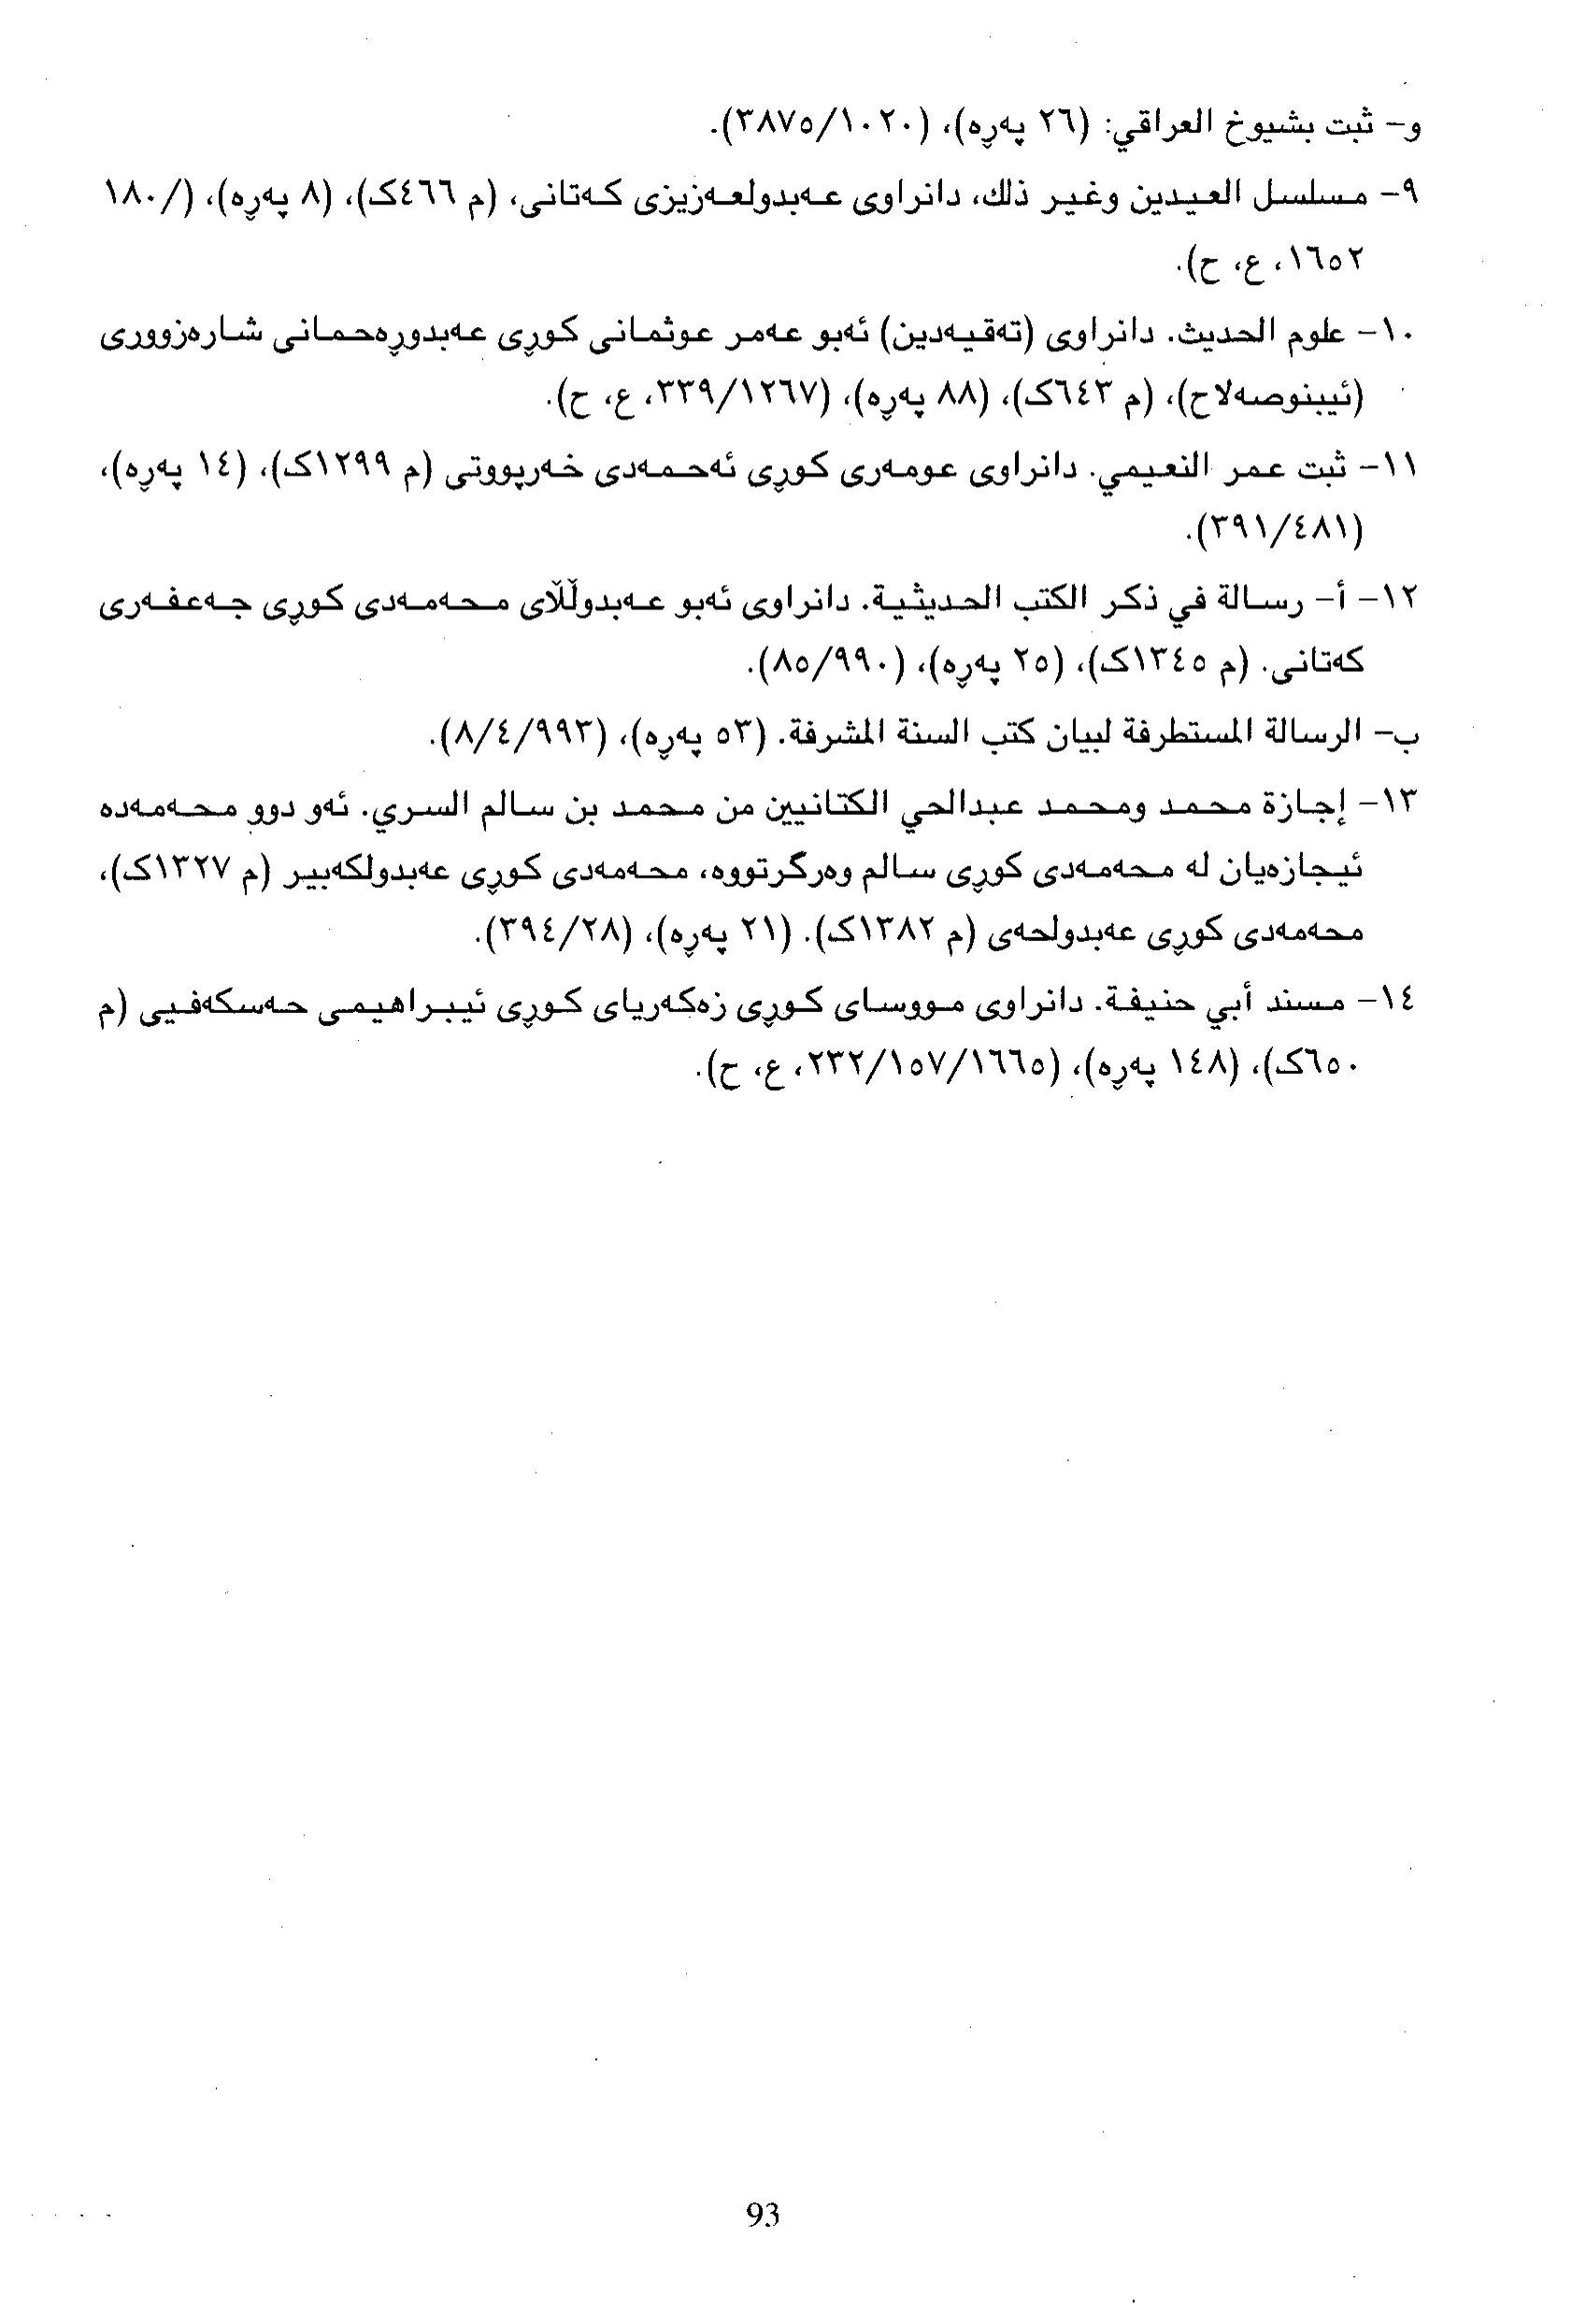 و- ثبت بشیوخ العراقي: (٢٦ پەڕە)، (٣٨٧٥/١٠٢٠).
٩- مسلسل العیدین وغیر ذلك، دانراوی عەبدولعەزیزی کەتانی، (م ٤٦٦ک)، (٨ پەڕە)، (/١٨٠
١٦٥٢، ع، ح).
١٠- علوم الحدیث. دانراوی (تەقیەدین) ئەبو عەمر عوثمانی کوڕی عەبدوڕەحمانی شارەزووری
(ئیبنوصەلاح)، (م ٦٤٣ک)، (٨٨ پەڕە)، (٣٣٩/١٢٦٧، ع، ح).
١١- ثبت عمر النعیمي. دانراوی عومەری کوڕی ئەحمەدی خەرپووتی (م ١٢٩٩ک)، (١٤ پەڕە)،
(٣٩١/٤٨١).
١٢- أ- رسالة في ذکر الکتب الحدیثیة. دانراوی ئەبو عەبدوڵڵای محەمەدی کوڕی جەعفەری
کەتانی. (م ١٣٤٥ک)، (٢٥ پەڕە)، (٨٥/٩٩٠).
ب- الرسالة المستطرفة لبیان کتب السنة المشرفة. (٥٣ پەڕە)، (٨/٤/٩٩٣).
١٣- إجازة محمد ومحمد عبدالحي الکتانیین من محمد بن سالم السري. ئەو دوو محەمەدە
ئیجازەیان لە محەمەدی کوڕی سالم وەرگرتووە، محەمەدی کوڕی عەبدولکەبیر (م ١٣٢٧ک)،
محەمەدی کوڕی عەبدولحەی (م ١٣٨٢ک). (٢١ پەڕە)، (٣٩٤/٢٨).
١٤- مسند أبي حنیفة. دانراوی مووسای کوڕی زەکەریای کوڕی ئیبراهیمی حەسکەفیی (م
٦٥٠ک)، (١٤٨ پەڕە)، (٢٣٢/١٥٧/١٦٦٥، ع، ح).
93